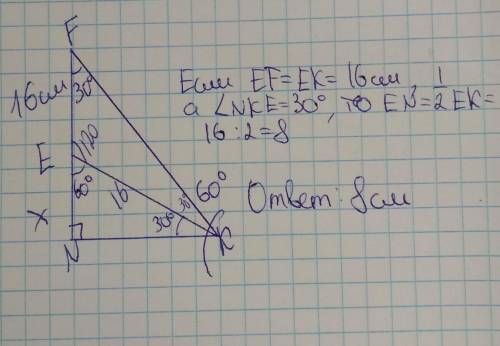 F
16см
30°
E
120
60°
16
x
30°
30
60°
N
K
Если EF=EK=16см,
а ∠NKE=30°, то EN=1/2 EK=
16:2=8
Ответ: 8см